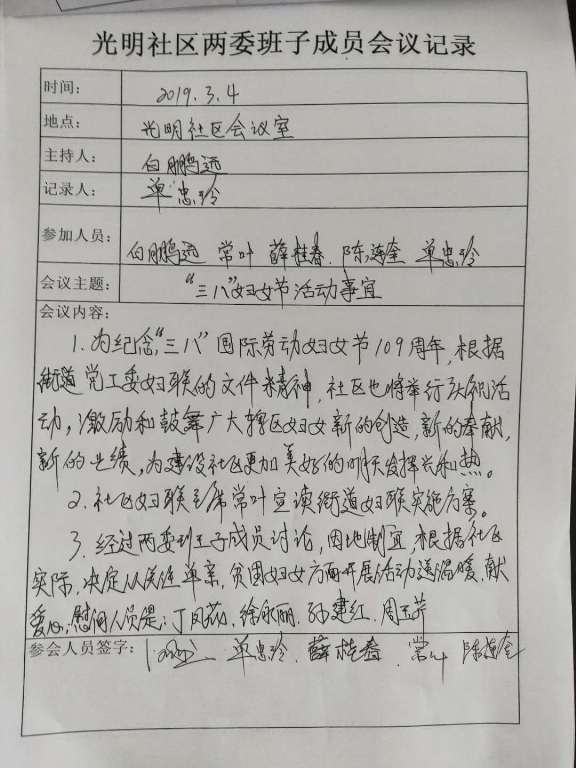 光明社区两委班子成员会议记录
时间: 2019.3.4
地点: 光明社区会议室
主持人: 白鹏远
记录人: 单忠玲
参加人员: 白鹏远 常叶 薛桂春 陈连奎 单忠玲
会议主题: “三八”妇女节活动事宜
会议内容:
1.为纪念“三八”国际劳动妇女节109周年,根据
街道党工委妇联的文件精神,社区也将举行庆祝活
动,激励和鼓舞广大辖区妇女新的创造,新的奉献,
新的业绩,为建设社区更加美好的明天发挥光和热。
2.社区妇联主席常叶宣读街道妇联实施方案。
3.经过两委班子成员讨论,因地制宜,根据社区
实际,决定从关注单亲,贫困妇女方面开展活动送温暖,献
爱心,慰问人员是:丁凤 徐永丽,孙建红,周玉芹
参会人员签字: 单忠玲 薛桂春 常叶 陈连奎